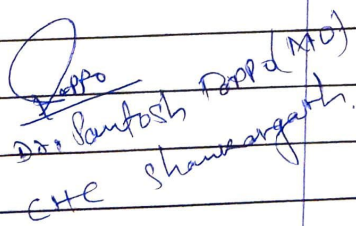 Toppo
Dr. Santosh Toppo (MO)
CHC Shankargarh.